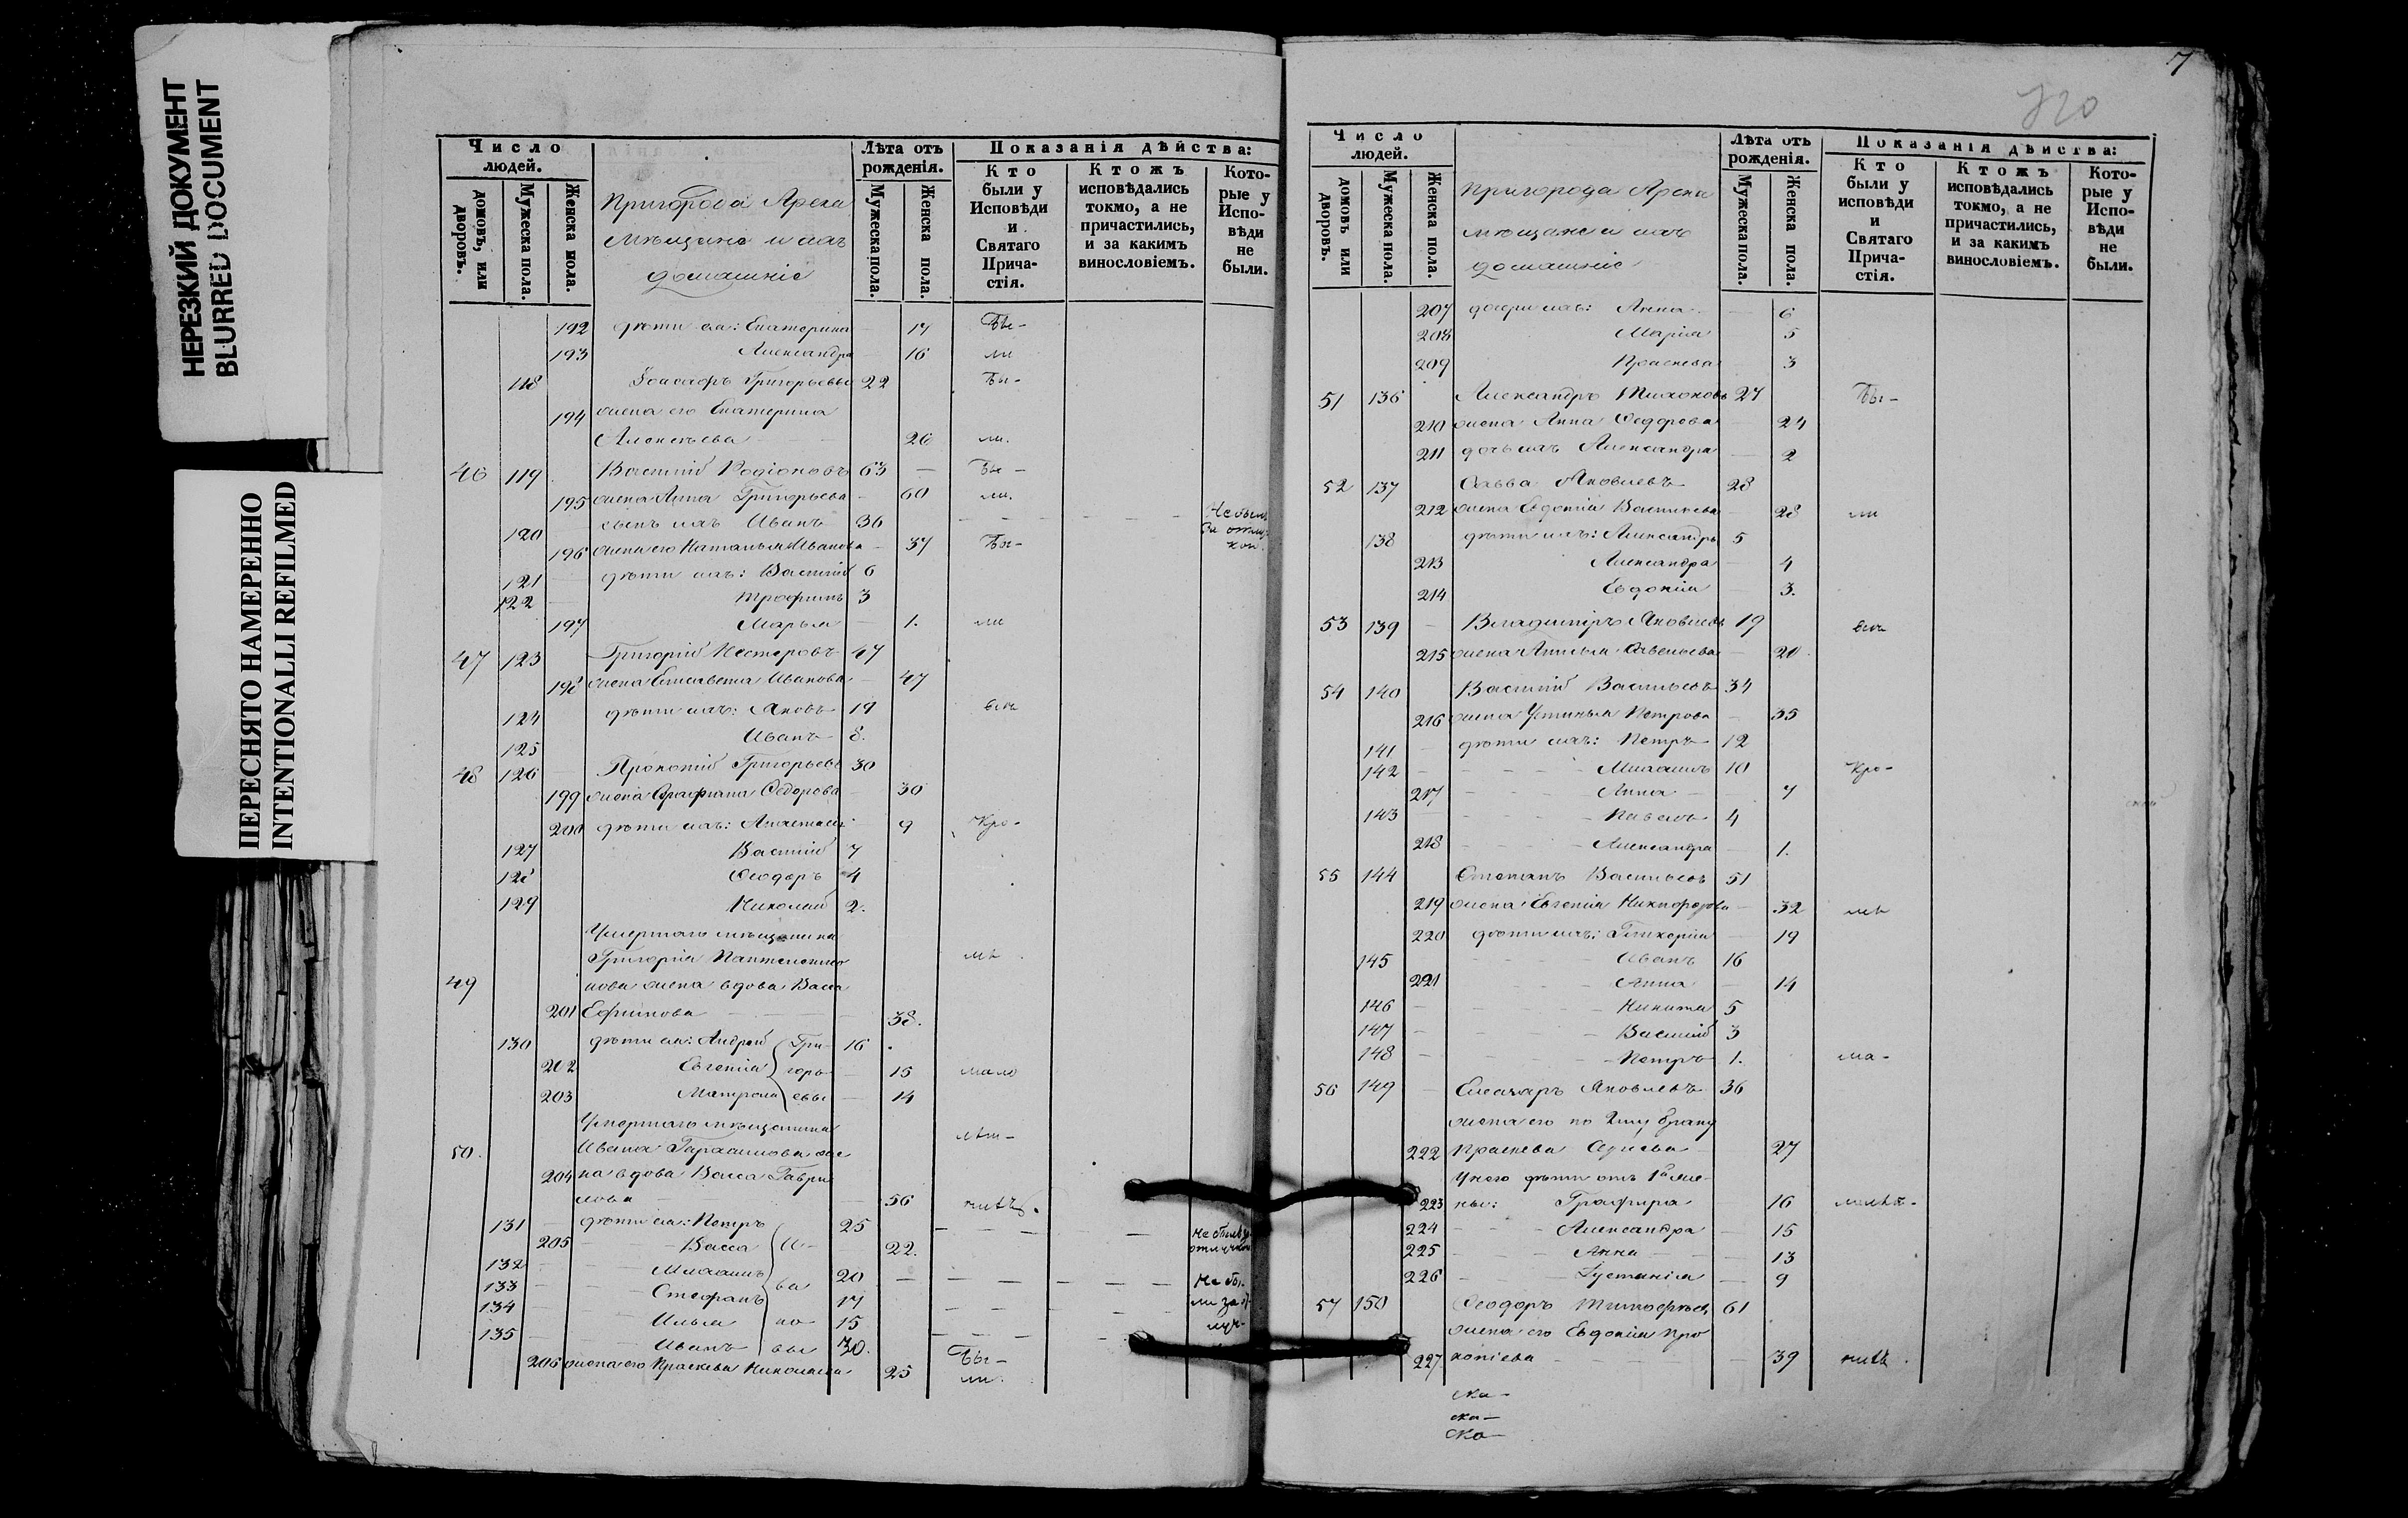 НЕРЕЗКИЙ ДОКУМЕНТ
BLURRED DOCUMENT
ПЕРЕСНЯТО НАМЕРЕННО
INTENTIONALLI REFILMED
Число людей.
домовъ, или дворовъ.
Мужеска пола.
Женска пола.
Пригорода Арска
мѣщане и ихъ
домашніе
Лѣта отъ рожденія.
Мужеска пола.
Женска пола.
Показанія дѣйства:
Кто были у Исповѣди и Святаго Прича-стія.
Ктожъ исповѣдались токмо, а не причастились, и за какимъ винословіемъ.
Кото-рые у Испо-вѣди не были.
192 дѣти ея: Екатерина 17 Бы-
193 Александра 16 ли
118 Іоасафъ Григорьевъ 22 Бы-
194 жена его Екатерина
Алексѣева 26 ли.
46 119 Василій Родіоновъ 63 Бы-
195 жена Анна Григорьева 60 ли.
120 сынъ ихъ Иванъ 36 Не былъ За отлуч-кой.
196 жена его Наталья Иванова 37 Бы-
121 дѣти ихъ: Василій 6
122 Трофимъ 3
197 Марья 1. ли
47 123 Григорій Несторовъ 47
198 жена Елисавета Иванова 47
124 дѣти ихъ: Яковъ 19
125 Иванъ 8.
48 126 Прокопій Григорьевъ 30
199 жена Федорова 30
200 дѣти ихъ: Анастасія 9 Кро-
127 Василій 7
128 Ѳеодоръ 4
129 Николай 2.
Умершаго мѣщанина
Григорія
49 нова жена вдова Васса
201 Ефимова 38.
130 дѣти ея: Андрей Гри- 16
202 Евгенія горь- 15 мало
203 Матрона евы 14
Умершаго мѣщанина
50. Ивана Герасимова же
204 на вдова Васса Гаври
лова 56
131 дѣти ея: Петръ 25 Не былъ за отлучкой
205 Васса И- 22.
132 Михаилъ 20 Не бы-
133 Стефанъ ва 17 ли за от
134 Илья но 15 луч-
135 Иванъ вы 30. Бы-
206 жена его Праскева Николаева 25 ли.
7
720
Число людей.
домовъ или дворовъ.
Мужеска пола.
Женска пола.
Пригорода Арска
мѣщане и ихъ
домашніе
Лѣта отъ рожденія.
Мужеска пола.
Женска пола.
Показанія дѣйства:
Кто были у исповѣди и Святаго Прича-стія.
Ктожъ исповѣдались токмо, а не причастились, и за какимъ винословіемъ.
Кото-рые у Испо-вѣди не были.
207 дочери ихъ: Анна 6
208 Марія 5
209 Праскева 3
51 136 Александръ Тихоновъ 27 Бы-
210 жена Анна Ѳедорова 24
211 дочь ихъ Александра 2
52 137 Савва Яковлевъ 28
212 жена Евдокія Васильева 28 ли
138 дѣти ихъ: Александръ 5
213 Александра 4
214 Евдокія 3.
53 139 Владиміръ Яковлевъ 19
215 жена Савельева 20.
54 140 Василій Васильевъ 34
216 жена Устинья Петрова 35
141 дѣти ихъ: Петръ 12
142 Михаилъ 10 Кро-
217 Анна 7
143 Павелъ 4
218 Александра 1.
55 144 Степанъ Васильевъ 51
219 жена Евгенія Никифорова 32
220 дѣти ихъ: Гликерія 19
145 Иванъ 16
221 Анна 14
146 Никита 5
147 Василій 3
148 Петръ 1. ма-
56 149 Елеазаръ Яковлевъ 36
жена его по 2му браку
222 Праскева 27
У него дѣти отъ 1й же-
223 ны: Глафира 16
224 Александра 15
225 Анна 13
226 Іустинія 9
57 150 Ѳеодоръ Тимофѣевъ 61
жена его Евдокія Про
227 копіева 39